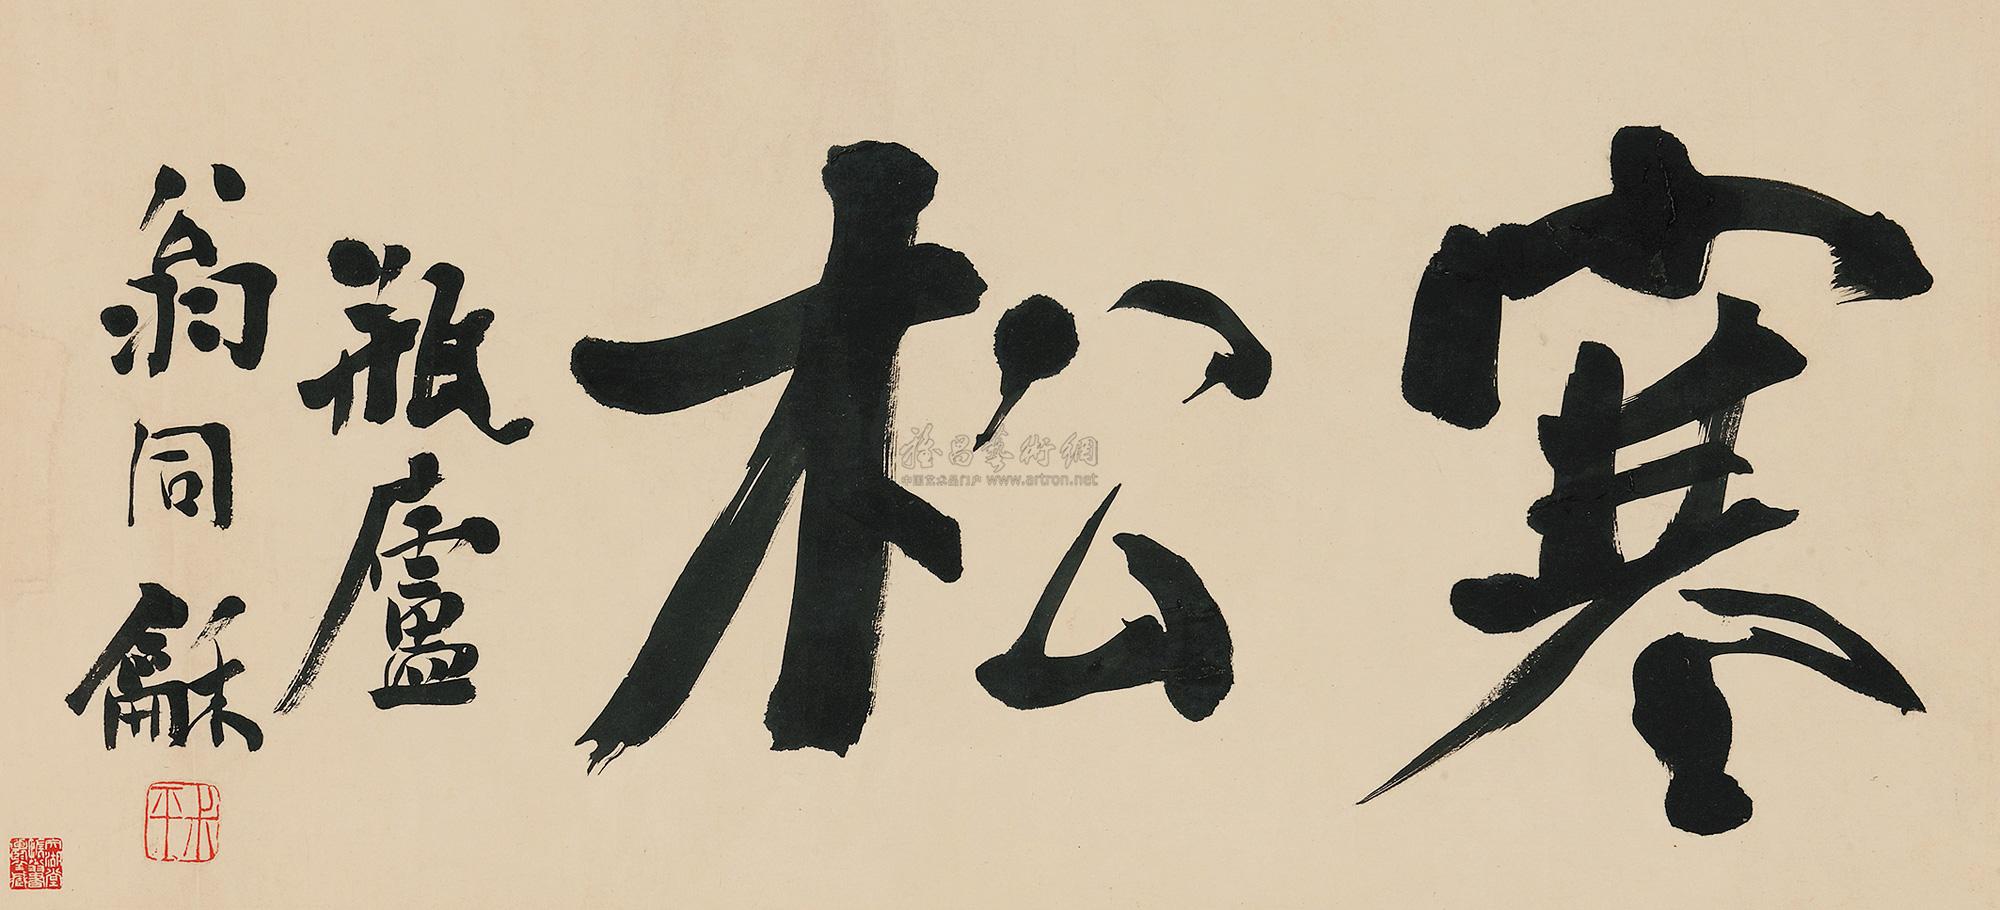 寒松
瓶廬
翁同龢
叔平
雅昌藝術網
中国艺术品门户 www.artron.net